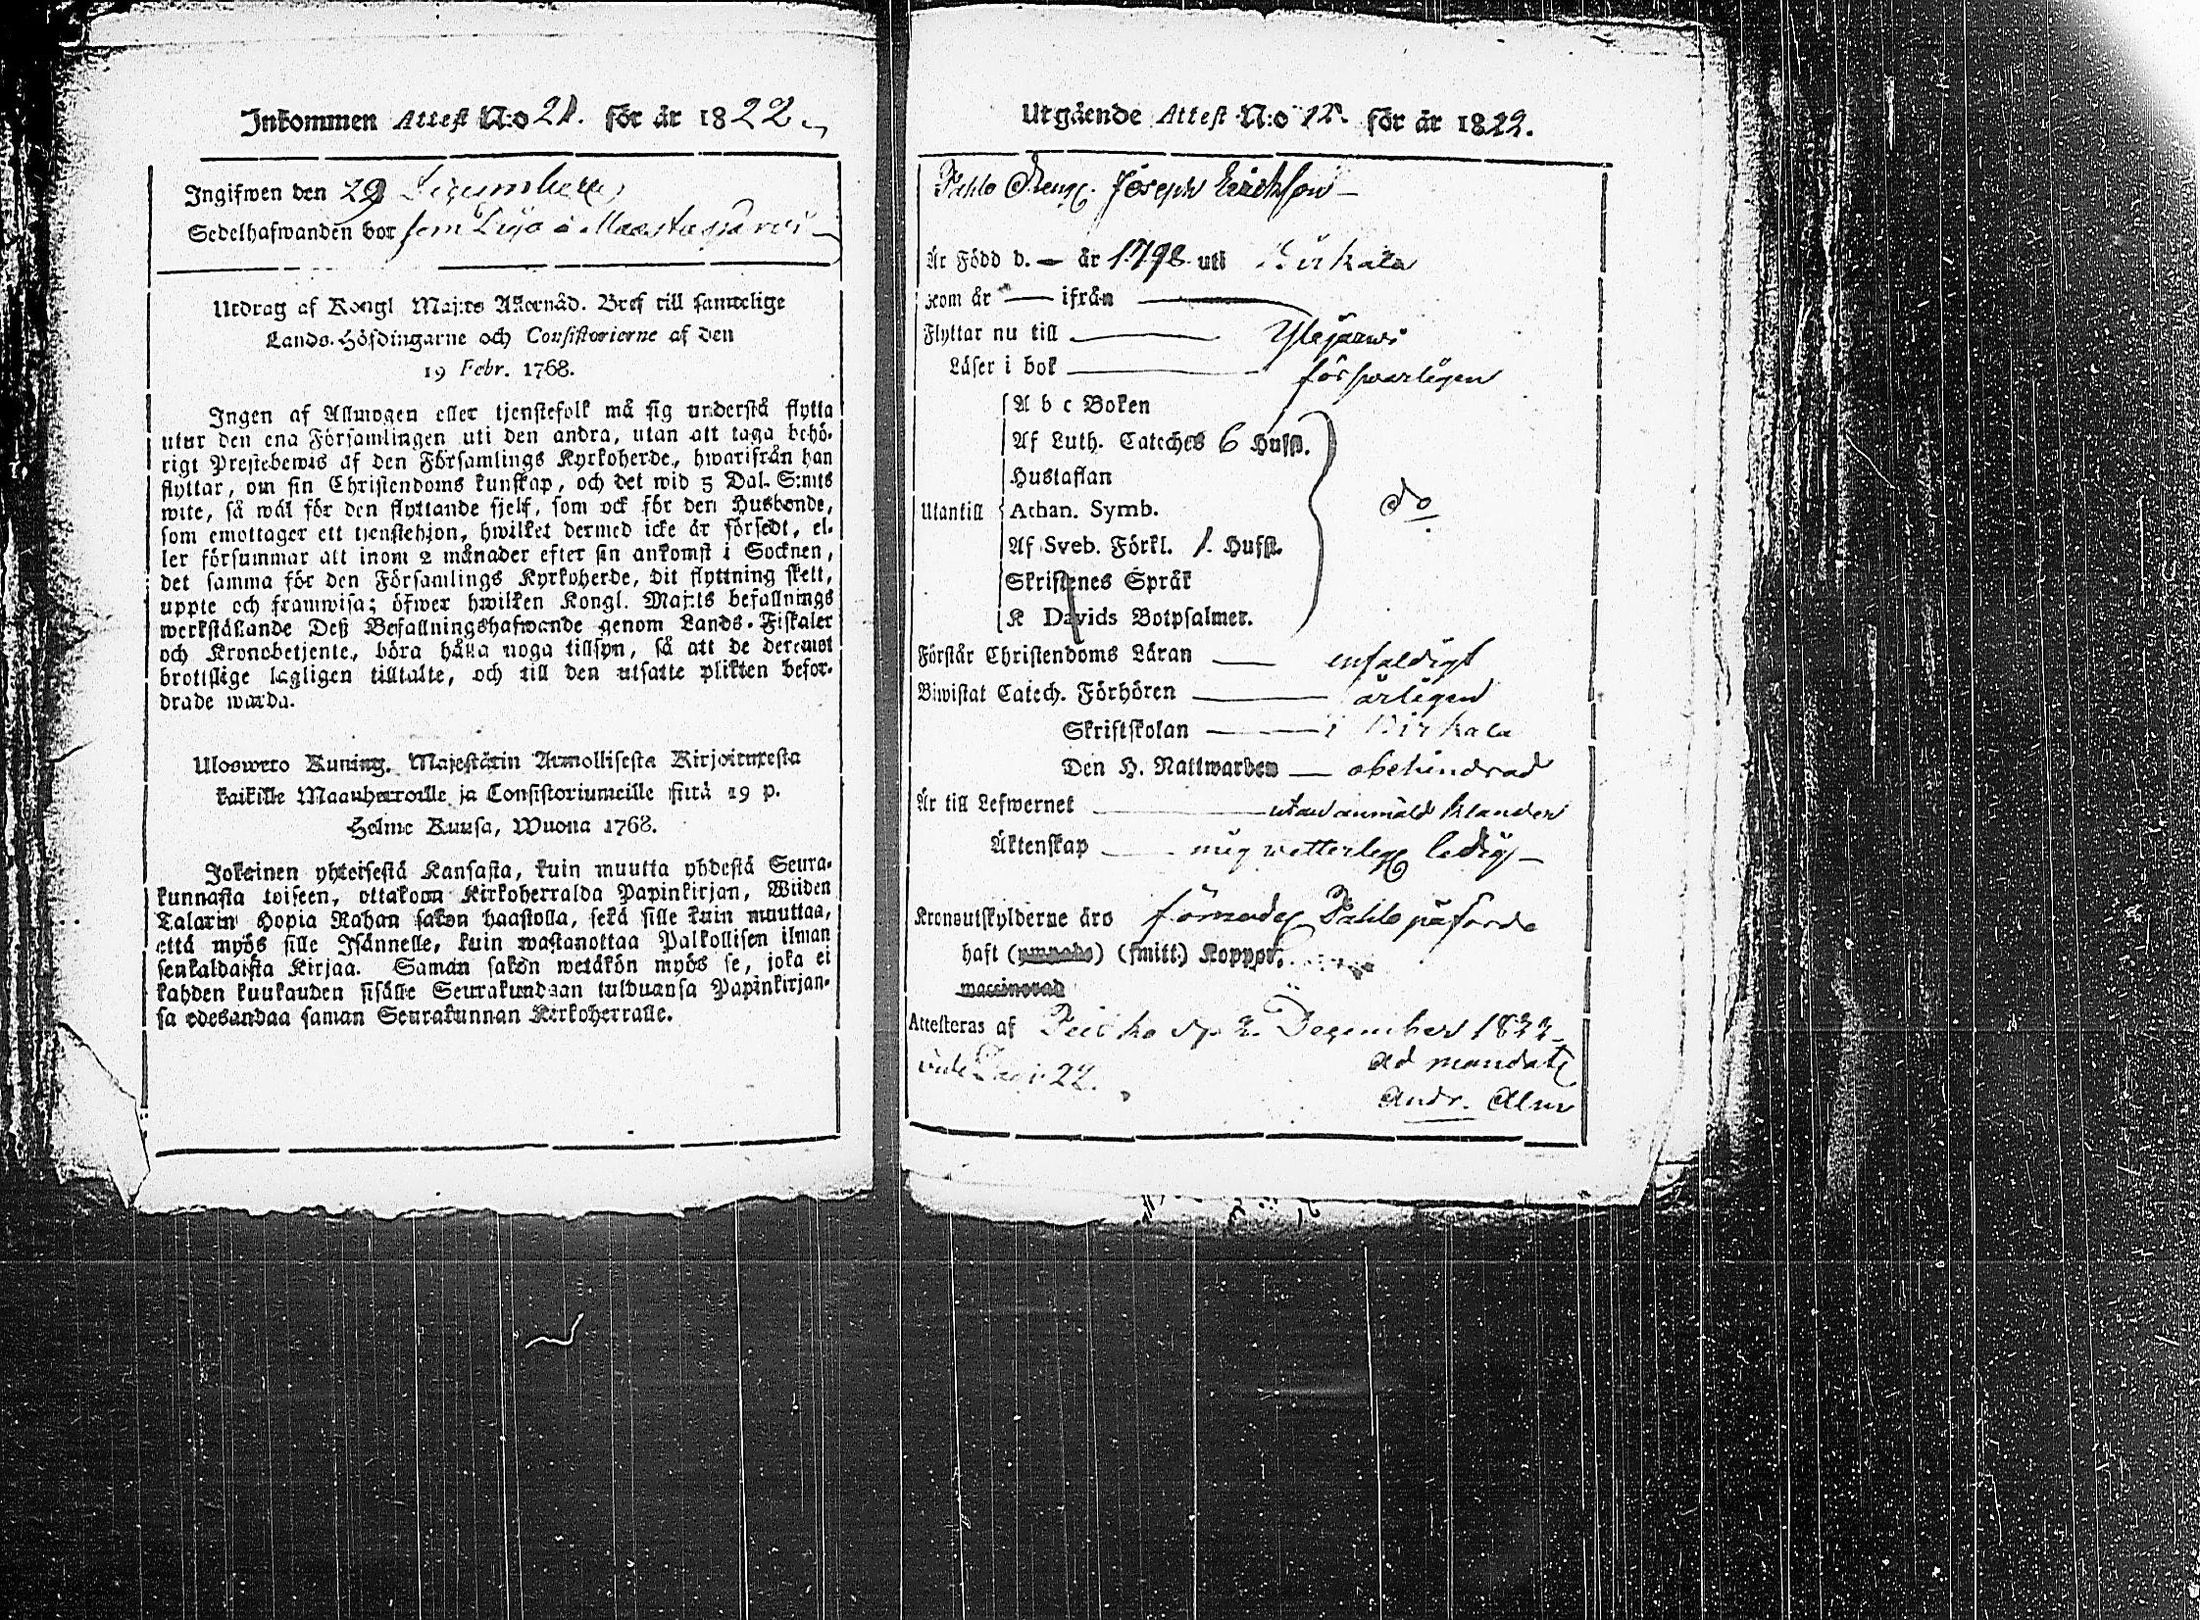 Inkommen Attest N:o 21. för år 1822
Ingifwen den 29 Decembr
Sedelhafwanden bor som
Utdrag af Kongl Maj:ts Allernåd. Bref till samtelige
Lands-Höfdingarne och Consistorierne af den
19 Febr. 1768.
Ingen af Allmogen eller tjenstefolk må sig understå flytta
utur den ena Församlingen uti den andra, utan att taga behö-
rigt Prestebewis af den Församlings Kyrkoherde, hwarifrån han
flyttar, om sin Christendoms kunskap, och det wid 5 Dal. S:mts
wite, så wäl för den flyttande sjelf, som ock för den Husbonde,
som emottager ett tjenstehjon, hwilket dermed icke är försedt, el-
ler försummar att inom 2 månader efter sin ankomst i Socknen,
det samma för den Församlings Kyrkoherde, dit flyttning skett,
uppte och framwisa; öfwer hwilken Kongl. Maj:ts befallnings
werkställande Deß Befallningshafwande genom Lands-Fiskaler
och Kronobetjente, böra hålla noga tillsyn, så att de deremot
brottslige lagligen tilltalte, och till den utsatte plikten befor-
drade warda.
Uloswetto Kuning. Majestätin Armollisesta Kirjoituxesta
kaikille Maanherroille ja Consistoriumeille siitä 19 p.
Helme Kuusa, Wuona 1768.
Jokainen yhteisestä Kansasta, kuin muutta yhdestä Seura-
kunnasta toiseen, ottakoon Kirkoherralda Papinkirjan, Wiiden
Talarin Hopia Rahan sakon haastolla, sekä sille kuin muuttaa,
että myös sille Isännelle, kuin wastanottaa Palkollisen ilman
senkaldaista Kirjaa. Saman sakon wetäkön myös se, joka ei
kahden kuukauden sisälle Seurakundaan tulduansa Papinkirjan-
sa edesandaa saman Seurakunnan Kirkoherralle.
Utgående Attest N:o 12. för år 1822.
Joseph Ericksson
Är Född d. — år 1798 uti Birkala
kom år — ifrån —
Flyttar nu till — Ylöjärwi
Läser i bok — försvarligen
A b c Boken
Af Luth. Cateches 6 Hufst.
Hustaflan
Utantill Athan. Symb. do
Af Sveb. Förkl. 1. Hufst.
Skriftenes Språk
K Davids Botpsalmer.
Förstår Christendoms Läran — enfaldigt
Biwistat Catech. Förhören — årligen
Skriftskolan — i Birkala
Den H. Nattwarden — obehindrad
Är till Lefwernet — utan anmäld klander
Äktenskap — mig vetterligt ledig
Kronoutskylderne äro påförde
haft (ympade) (smitt.) Koppor.
waccinerad
Attesteras af d. 2. December 1822
Ad mandatum
Andr.